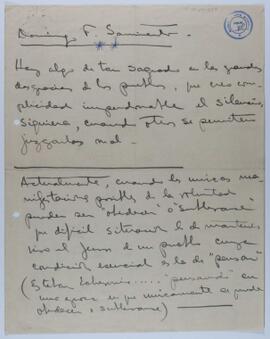 Domingo F. Sarmiento.
Hay algo de tan sagrado en las grandes
desgracias de los pueblos, que creo com-
plicidad imperdonable el silencio
siquiera, cuando otros se permiten
juzgarlas mal.
Actualmente, cuando las únicas ma-
nifestaciones posibles de la voluntad
pueden ser "obedecer" o "sublevarse"
qué difícil situación la de mantener
vivo al de un pueblo cuya
condición esencial es la de "pensar"
(Esteban Echeverría ..... "pensando" en
una época en que únicamente se puede
obedecer o sublevarse)